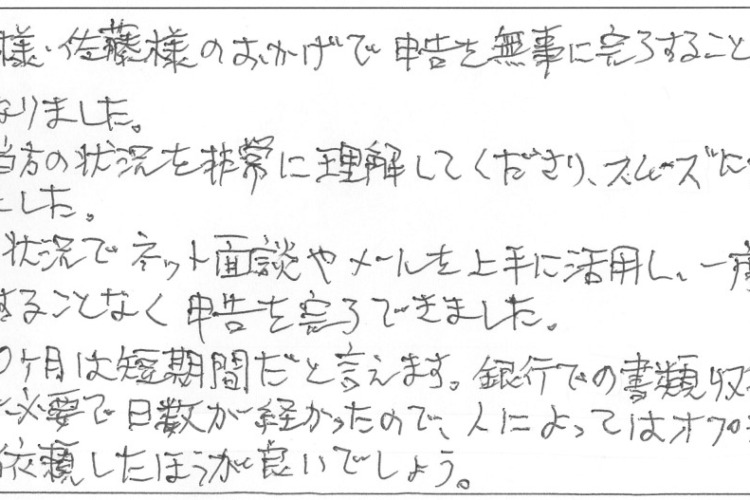 様・佐藤様のおかげで申告を無事に完了すること
なりました。
当方の状況を非常に理解してくださり、スムーズに
した。
状況でネット面談やメールを上手に活用し、一度
することなく申告を完了できました。
0ヶ月は短期間だと言えます。銀行での書類収
必要で日数が経かったので、人によってはオプ
依頼したほうが良いでしょう。